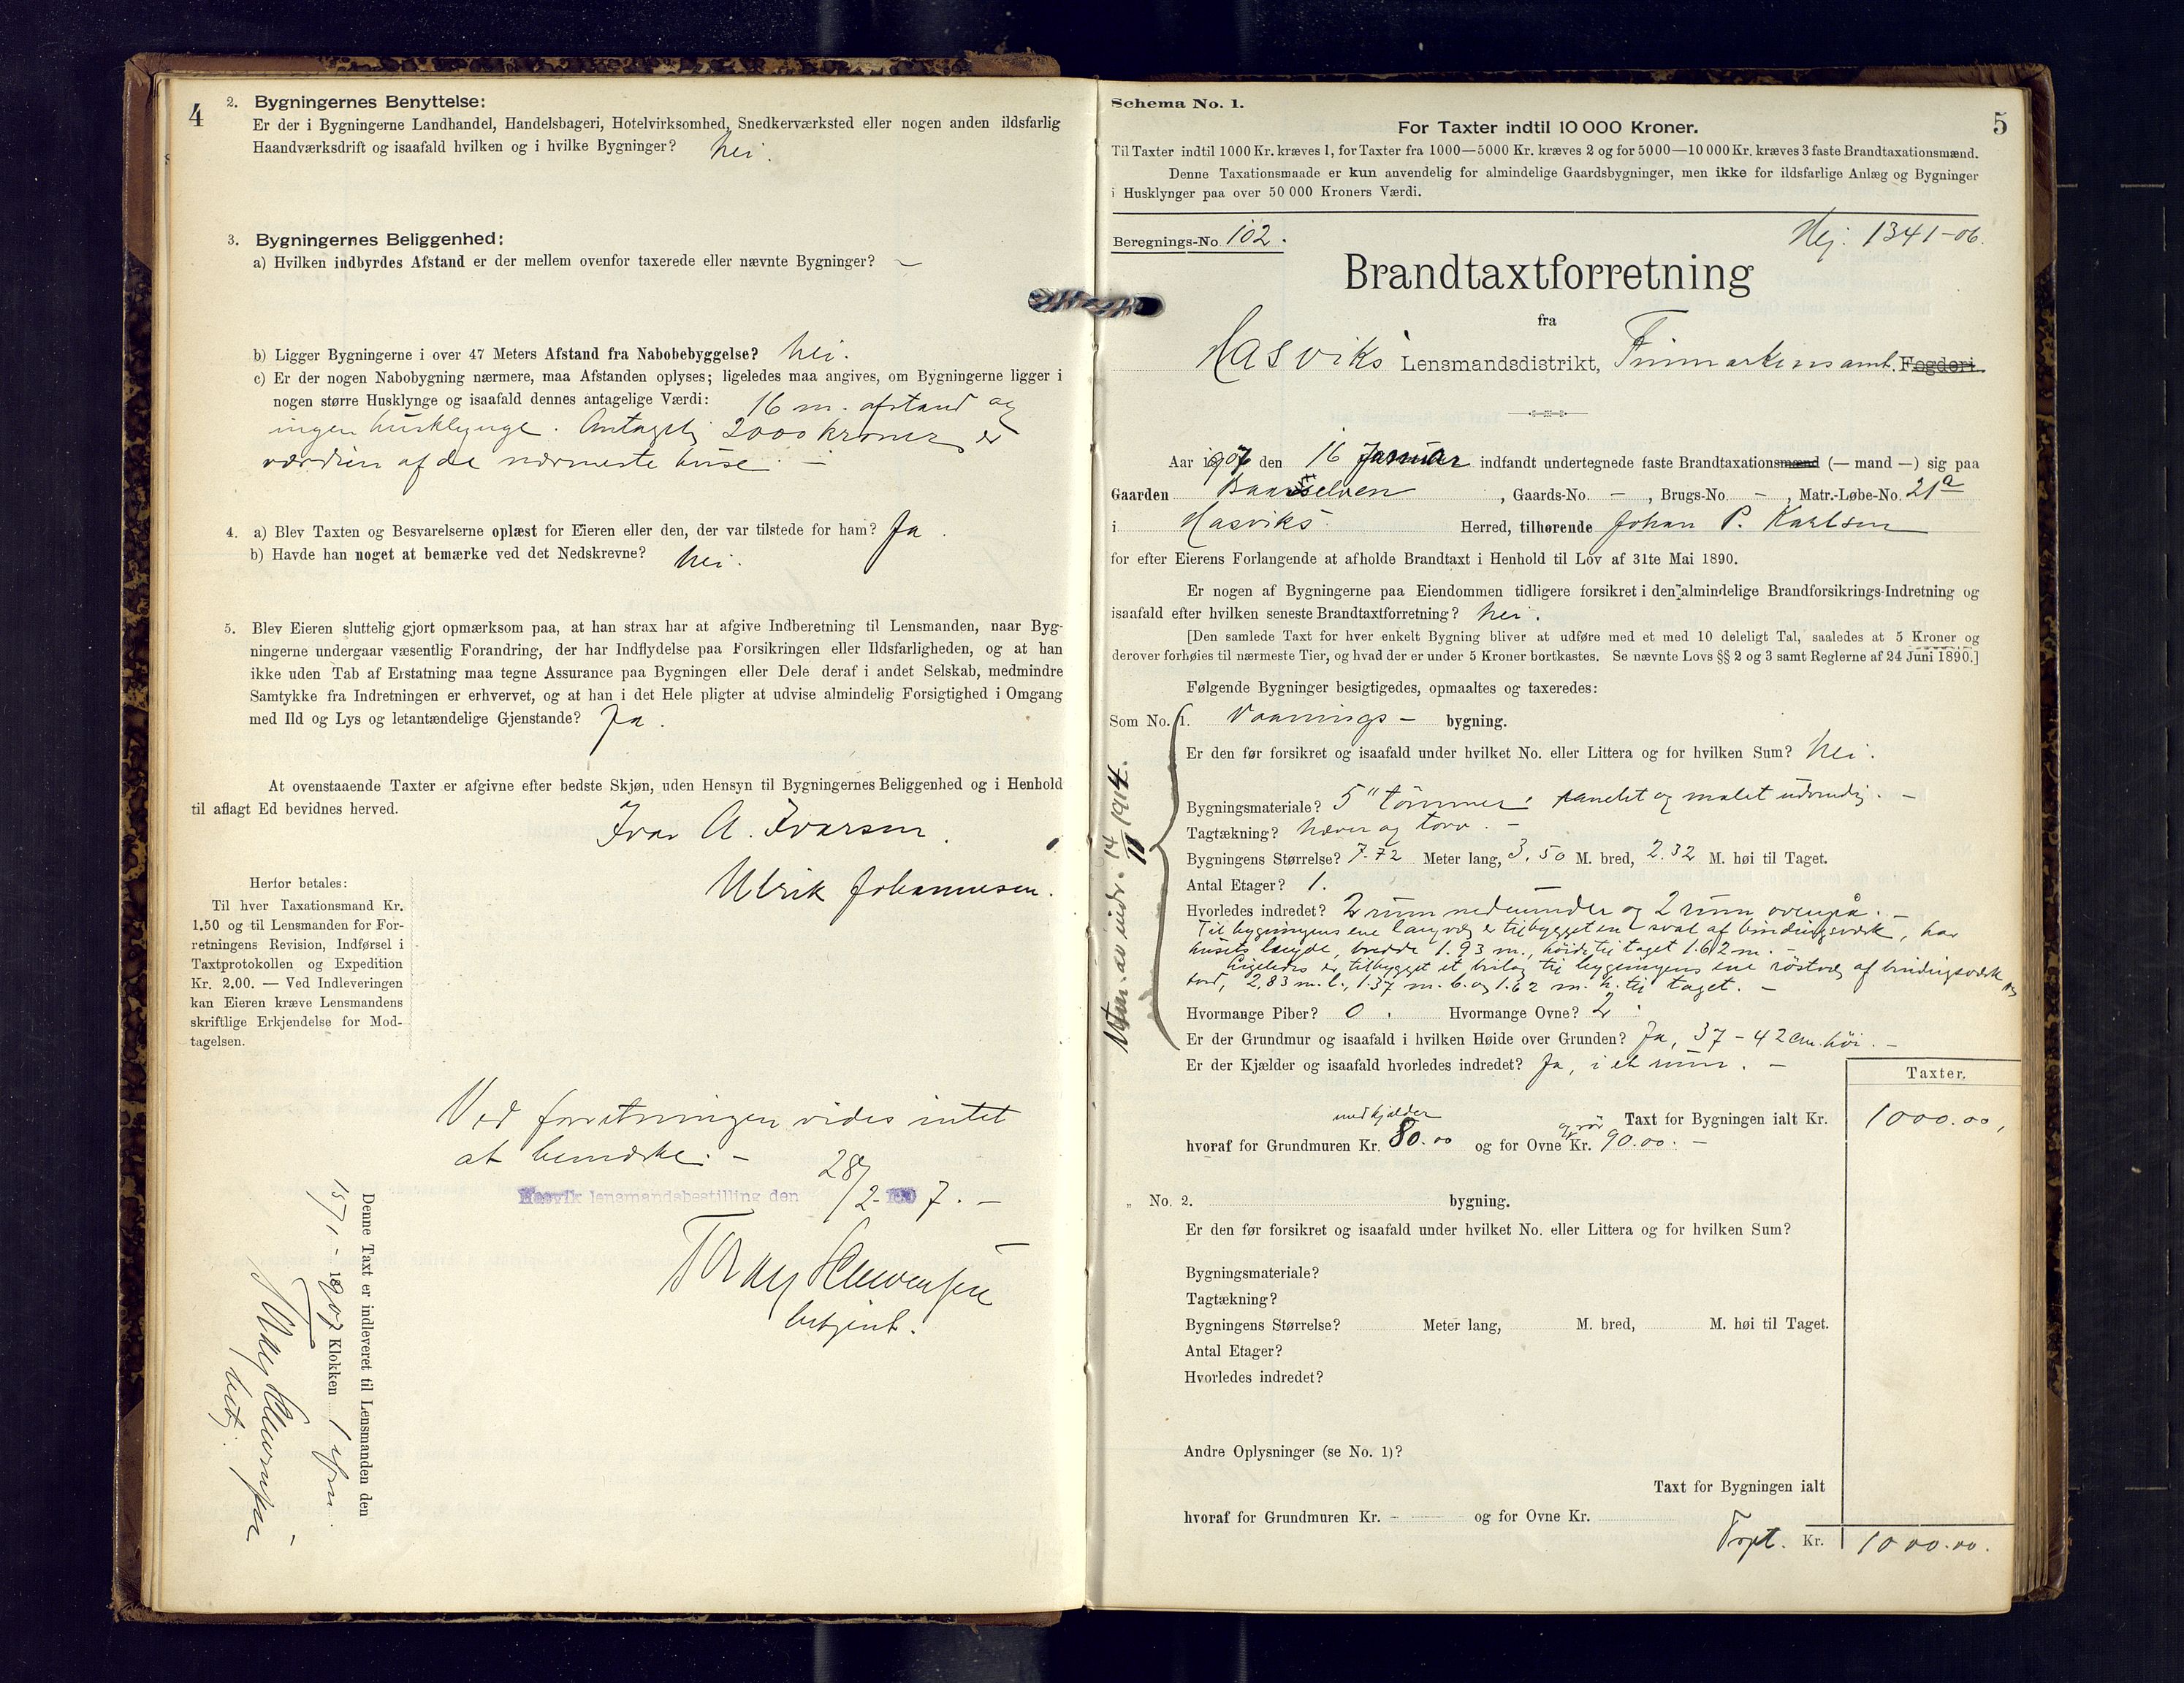 4
2. Bygningernes Benyttelse:
Er der i Bygningerne Landhandel, Handelsbageri, Hotelvirksomhed, Snedkerværksted eller nogen anden ildsfarlig
Haandværksdrift og isaafald hvilken og i hvilke Bygninger? Nei.
3. Bygningernes Beliggenhed:
a) Hvilken indbyrdes Afstand er der mellem ovenfor taxerede eller nævnte Bygninger? —
b) Ligger Bygningerne i over 47 Meters Afstand fra Nabobebyggelse? Nei.
c) Er der nogen Nabobygning nærmere, maa Afstanden oplyses; ligeledes maa angives, om Bygningerne ligger i
nogen større Husklynge og isaafald dennes antagelige Værdi: 16 m. afstand og
ingen husklynge. Antagelig 2000 kroner er
værdien af de nærmeste huse. —
4. a) Blev Taxten og Besvarelserne oplæst for Eieren eller den, der var tilstede for ham? Ja.
b) Havde han noget at bemærke ved det Nedskrevne? Nei.
5. Blev Eieren sluttelig gjort opmærksom paa, at han strax har at afgive Indberetning til Lensmanden, naar Byg-
ningerne undergaar væsentlig Forandring, der har Indflydelse paa Forsikringen eller Ildsfarligheden, og at han
ikke uden Tab af Erstatning maa tegne Assurance paa Bygningen eller Dele deraf i andet Selskab, medmindre
Samtykke fra Indretningen er erhvervet, og at han i det Hele pligter at udvise almindelig Forsigtighed i Omgang
med Ild og Lys og letantændelige Gjenstande? Ja.
At ovenstaaende Taxter er afgivne efter bedste Skjøn, uden Hensyn til Bygningernes Beliggenhed og i Henhold
til aflagt Ed bevidnes herved.
Ivar A. Ivarsen.
Ulrik Johannesen.
Herfor betales:
Til hver Taxationsmand Kr.
1.50 og til Lensmanden for For-
retningens Revision, Indførsel i
Taxtprotokollen og Expedition
Kr. 2.00. — Ved Indleveringen
kan Eieren kræve Lensmandens
skriftlige Erkjendelse for Mod-
tagelsen.
Ved forretningen vides intet
at bemærke. —
Hasvik lensmandsbestilling den 28/2 - 1907. —
betjent.
Denne Taxt er indleveret til Lensmanden den
15/1 - 1907 Klokken 1 efm
betj.
Schema No. 1.
5
For Taxter indtil 10 000 Kroner.
Til Taxter indtil 1000 Kr. kræves 1, for Taxter fra 1000—5000 Kr. kræves 2 og for 5000—10 000 Kr. kræves 3 faste Brandtaxationsmænd.
Denne Taxationsmaade er kun anvendelig for almindelige Gaardsbygninger, men ikke for ildsfarlige Anlæg og Bygninger
i Husklynger paa over 50 000 Kroners Værdi.
Beregnings-No. 102.
1341-06.
Brandtaxtforretning
fra
Hasviks Lensmandsdistrikt, Finmarkens amt. Fogderi.
Aar 1907 den 16 Januar indfandt undertegnede faste Brandtaxationsmænd (— mand —) sig paa
Gaarden , Gaards-No. – , Brugs-No. – , Matr.-Løbe-No. 21a
i Hasviks Herred, tilhørende Johan P. Karlsen
for efter Eierens Forlangende at afholde Brandtaxt i Henhold til Lov af 31te Mai 1890.
Er nogen af Bygningerne paa Eiendommen tidligere forsikret i den almindelige Brandforsikrings-Indretning og
isaafald efter hvilken seneste Brandtaxtforretning? Nei.
[Den samlede Taxt for hver enkelt Bygning bliver at udføre med et med 10 deleligt Tal, saaledes at 5 Kroner og
derover forhøies til nærmeste Tier, og hvad der er under 5 Kroner bortkastes. Se nævnte Lovs §§ 2 og 3 samt Reglerne af 24 Juni 1890.]
Følgende Bygninger besigtigedes, opmaaltes og taxeredes:
Som No. 1. Vaanings- bygning.
Er den før forsikret og isaafald under hvilket No. eller Littera og for hvilken Sum? Nei.
Bygningsmateriale? 5" tømmer, panelet og malet udvendig. —
Tagtækning? Næver og torv. —
Bygningens Størrelse? 7.72 Meter lang, 3.50 M. bred, 2.32 M. høi til Taget.
Antal Etager? 1.
Hvorledes indredet? 2 rum nedenunder og 2 rum ovenpå. —
Til bygningens ene langvæg er tilbygget en sval af bindingsværk, har
husets længde, bredde 1.93 m., høide til taget 1.62 m. —
Ligeledes er tilbygget et bislag til bygningens ene røstvæg af bindingsværk
2.83 m. l., 1.37 m. b. og 1.62 m. h. til taget. —
Hvormange Piber? 0. Hvormange Ovne? 2
Er der Grundmur og isaafald i hvilken Høide over Grunden? Ja, 37 - 42 cm. høi. —
Er der Kjælder og isaafald hvorledes indredet? Ja, i et rum. —
14/II 1914.
Taxter.
Taxt for Bygningen ialt Kr. 1000.00,
med kjælder
og rør
hvoraf for Grundmuren Kr. 80.00 og for Ovne Kr. 90.00. —
„ No. 2. bygning.
Er den før forsikret og isaafald under hvilket No. eller Littera og for hvilken Sum?
Bygningsmateriale?
Tagtækning?
Bygningens Størrelse? Meter lang, M. bred, M. høi til Taget.
Antal Etager?
Hvorledes indredet?
Andre Oplysninger (se No. 1)?
Taxt for Bygningen ialt
hvoraf for Grundmuren Kr. og for Ovne Kr.
Trpt. Kr. 1000.00.